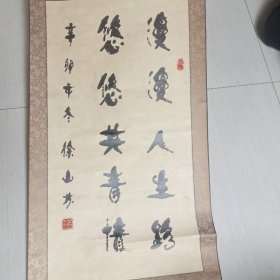 漫漫人生路
悠悠共青情
辛卯年冬徐